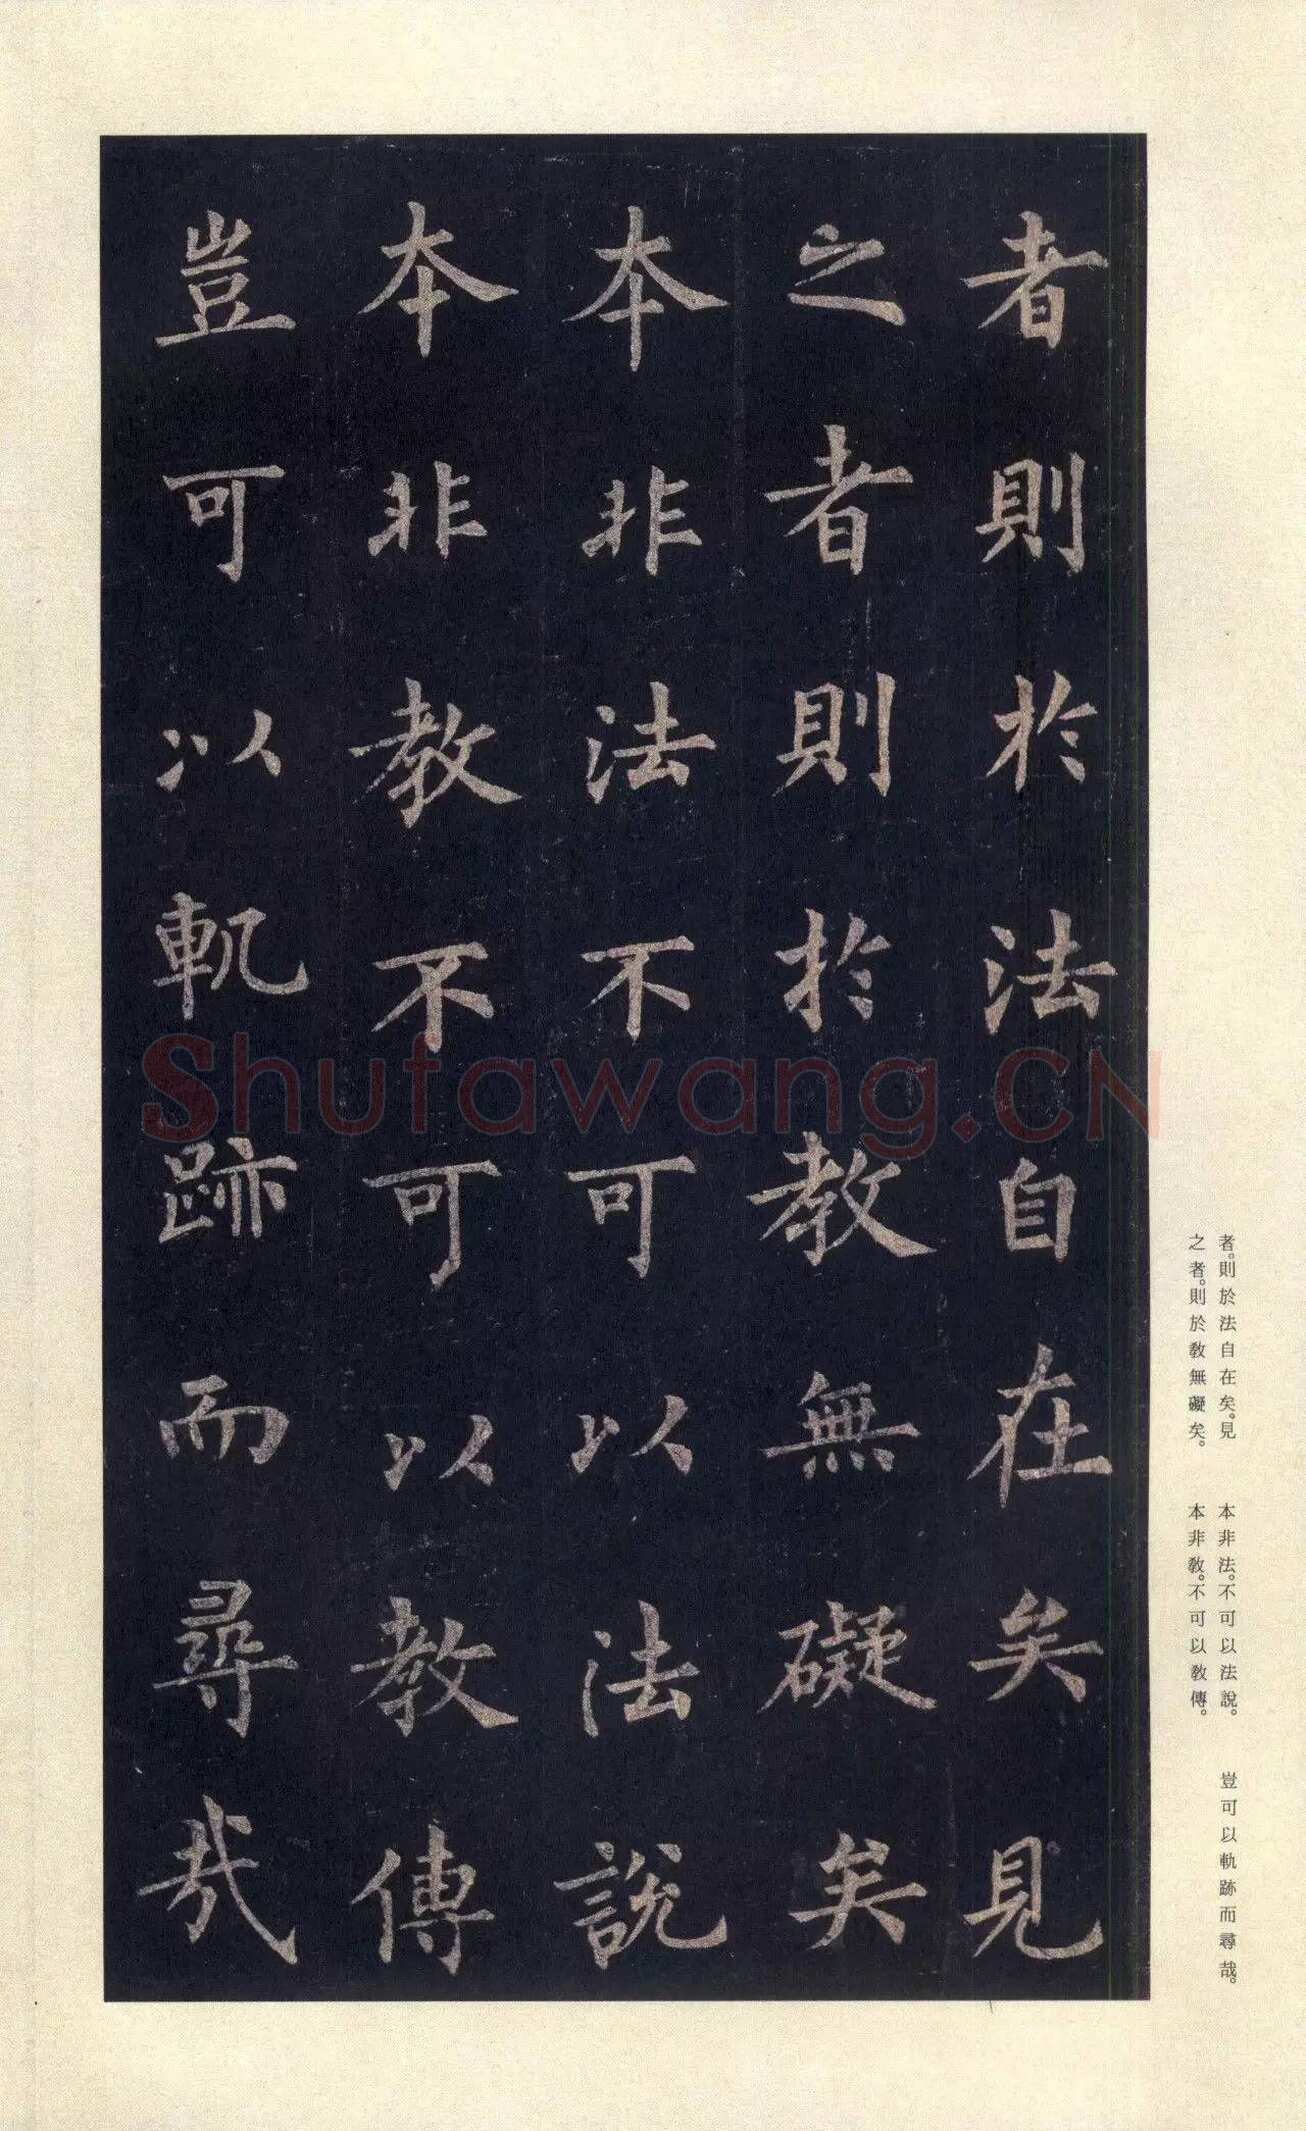 者則於法自在矣見
之者則於教無礙矣
本非法不可以法說
本非教不可以教傳
豈可以軌跡而尋哉
者。則於法自在矣。見
之者。則於教無礙矣。
本非法。不可以法說。
本非教。不可以教傳。
豈可以軌跡而尋哉。
Shufawang.CN